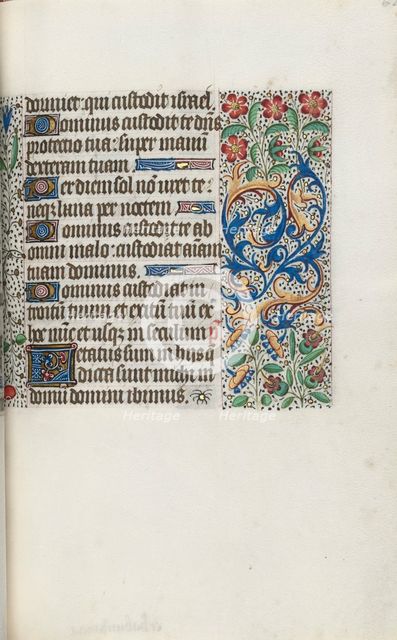 dormiet qui custodit israel.
Dominus custodit te dñs
protectio tua: super manū
dexteram tuam
Per diem sol nō uret te:
neqz luna per noctem
Dominus custodit te ab
omni malo: custodiat aīam
tuam dominus.
Dominus custodiat in
troitū tuum et exitū tuū ex
hoc nūc et usqz in seculum
Letatus sum in hijs q
dicta sunt michi in
domū domini ibimus.
Heritage
Heritage